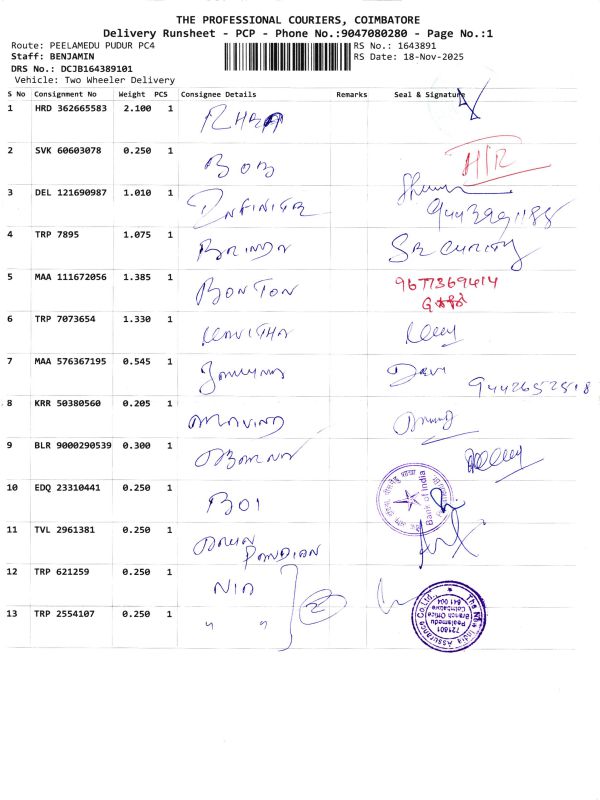 THE PROFESSIONAL COURIERS, COIMBATORE
Delivery Runsheet - PCP - Phone No.:9047080280 - Page No.:1
Route: PEELAMEDU PUDUR PC4 RS No.: 1643891
Staff: BENJAMIN RS Date: 18-Nov-2025
DRS No.: DCJB164389101
Vehicle: Two Wheeler Delivery
S No Consignment No Weight PCS Consignee Details Remarks Seal & Signature
1 HRD 362665583 2.100 1
2 SVK 60603078 0.250 1 BOB
3 DEL 121690987 1.010 1 INFINITE
4 TRP 7895 1.075 1 BRINDA SECURITY
5 MAA 111672056 1.385 1 BONTON 9677369414
6 TRP 7073654 1.330 1 KAVITHA
7 MAA 576367195 0.545 1 Devi 9442652518
8 KRR 50380560 0.205 1 ARAVIND
9 BLR 9000290539 0.300 1
10 EDQ 23310441 0.250 1 BOI Bank of India
11 TVL 2961381 0.250 1 ARUN PANDIAN
12 TRP 621259 0.250 1 NIA
13 TRP 2554107 0.250 1 " " 2
The New India Assurance Co. Ltd.
721801
Peelamedu
Branch Office
Coimbatore
641 004